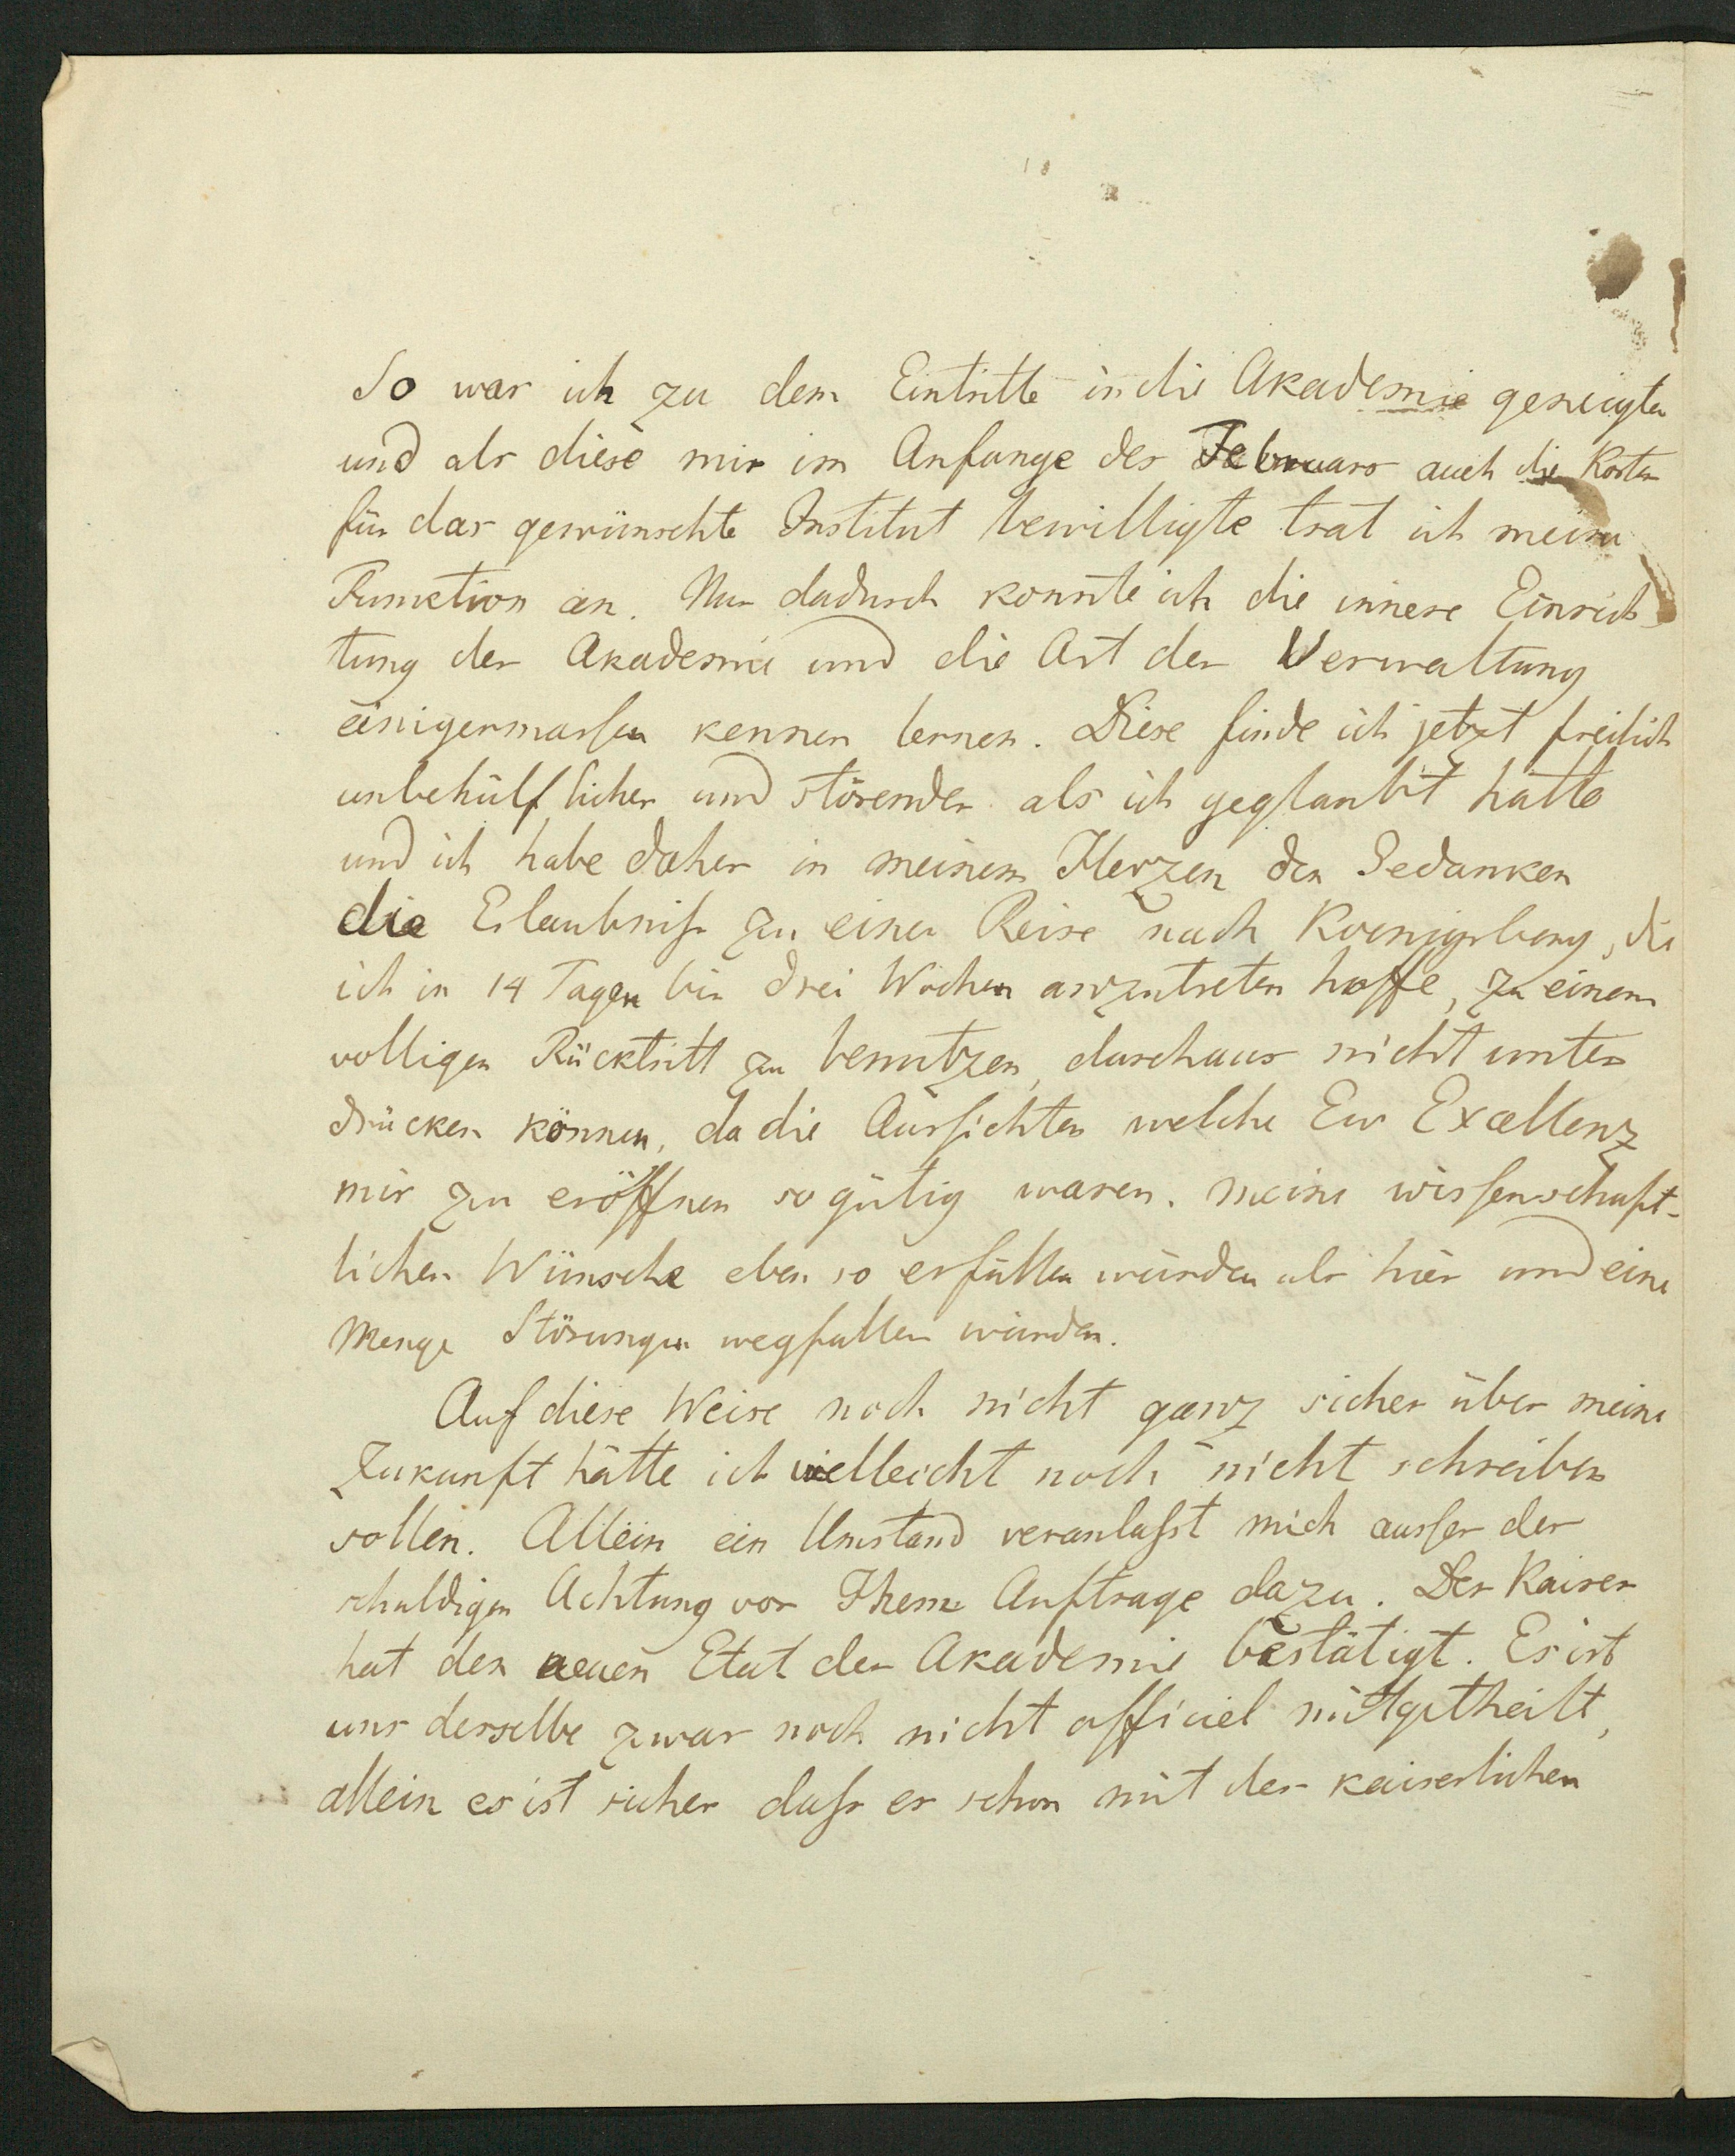 So war ich zu dem Eintritte in die Akademie geneigter
und als diese mir im Anfange des Februars auch die Kosten
für das gewünschte Institut bewilligte trat ich meine
Funktion an. Nur dadurch konnte ich die innere Einrich-
tung der Akademie und die Art der Verwaltung
einigermassen kennen lernen. Diese finde ich jetzt freilich
unbehülflicher und störender als ich geglaubt hatte
und ich habe daher in meinem Herzen den Gedanken
die Erlaubniss zu einer Reise nach Koenigsberg, die
ich in 14 Tagen bis drei Wochen anzutreten hoffe, zu einem
volligen Rücktritt zu benutzen, durchaus nicht unter
drücken können, da die Aussichten welche Ew Excellenz
mir zu eröffnen so gütig waren, meine wissenschaft-
lichen Wünsche eben so erfüllen würden als hier und eine
Menge Störungen wegfallen würden.
Auf diese Weise noch nicht ganz sicher über meine
Zukunft hätte ich vielleicht noch nicht schreiben
sollen. Allein ein Umstand veranlasst mich ausser der
schuldigen Achtung vor Ihrem Auftrage dazu. Der Kaiser
hat den neuen Etat der Akademie bestätigt. Es ist
uns derselbe zwar noch nicht officiel mitgetheilt,
allein es ist sicher dass er schon mit der kaiserlichen